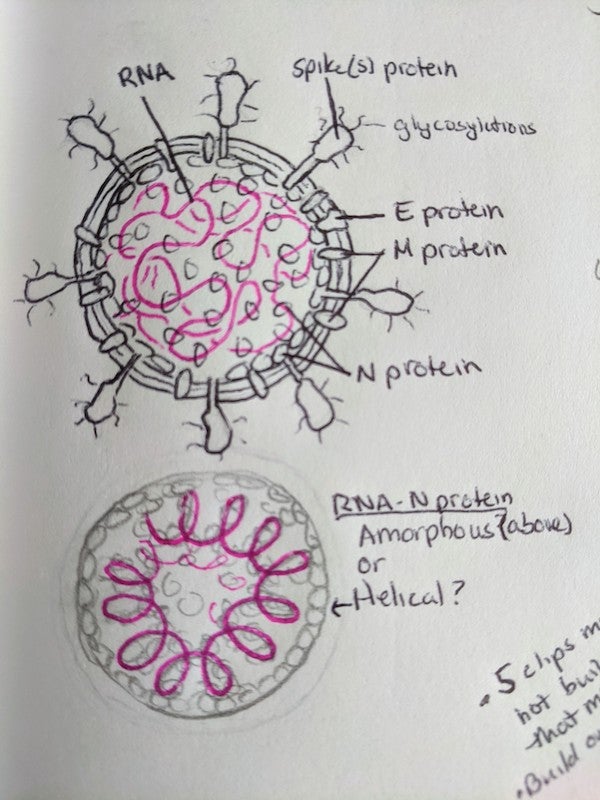 RNA
Spike(s) protein
glycosylations
E protein
M protein
N protein
RNA-N protein
Amorphous?(above)
or
←Helical?
• 5 clips m
not buil
that m
• Build o